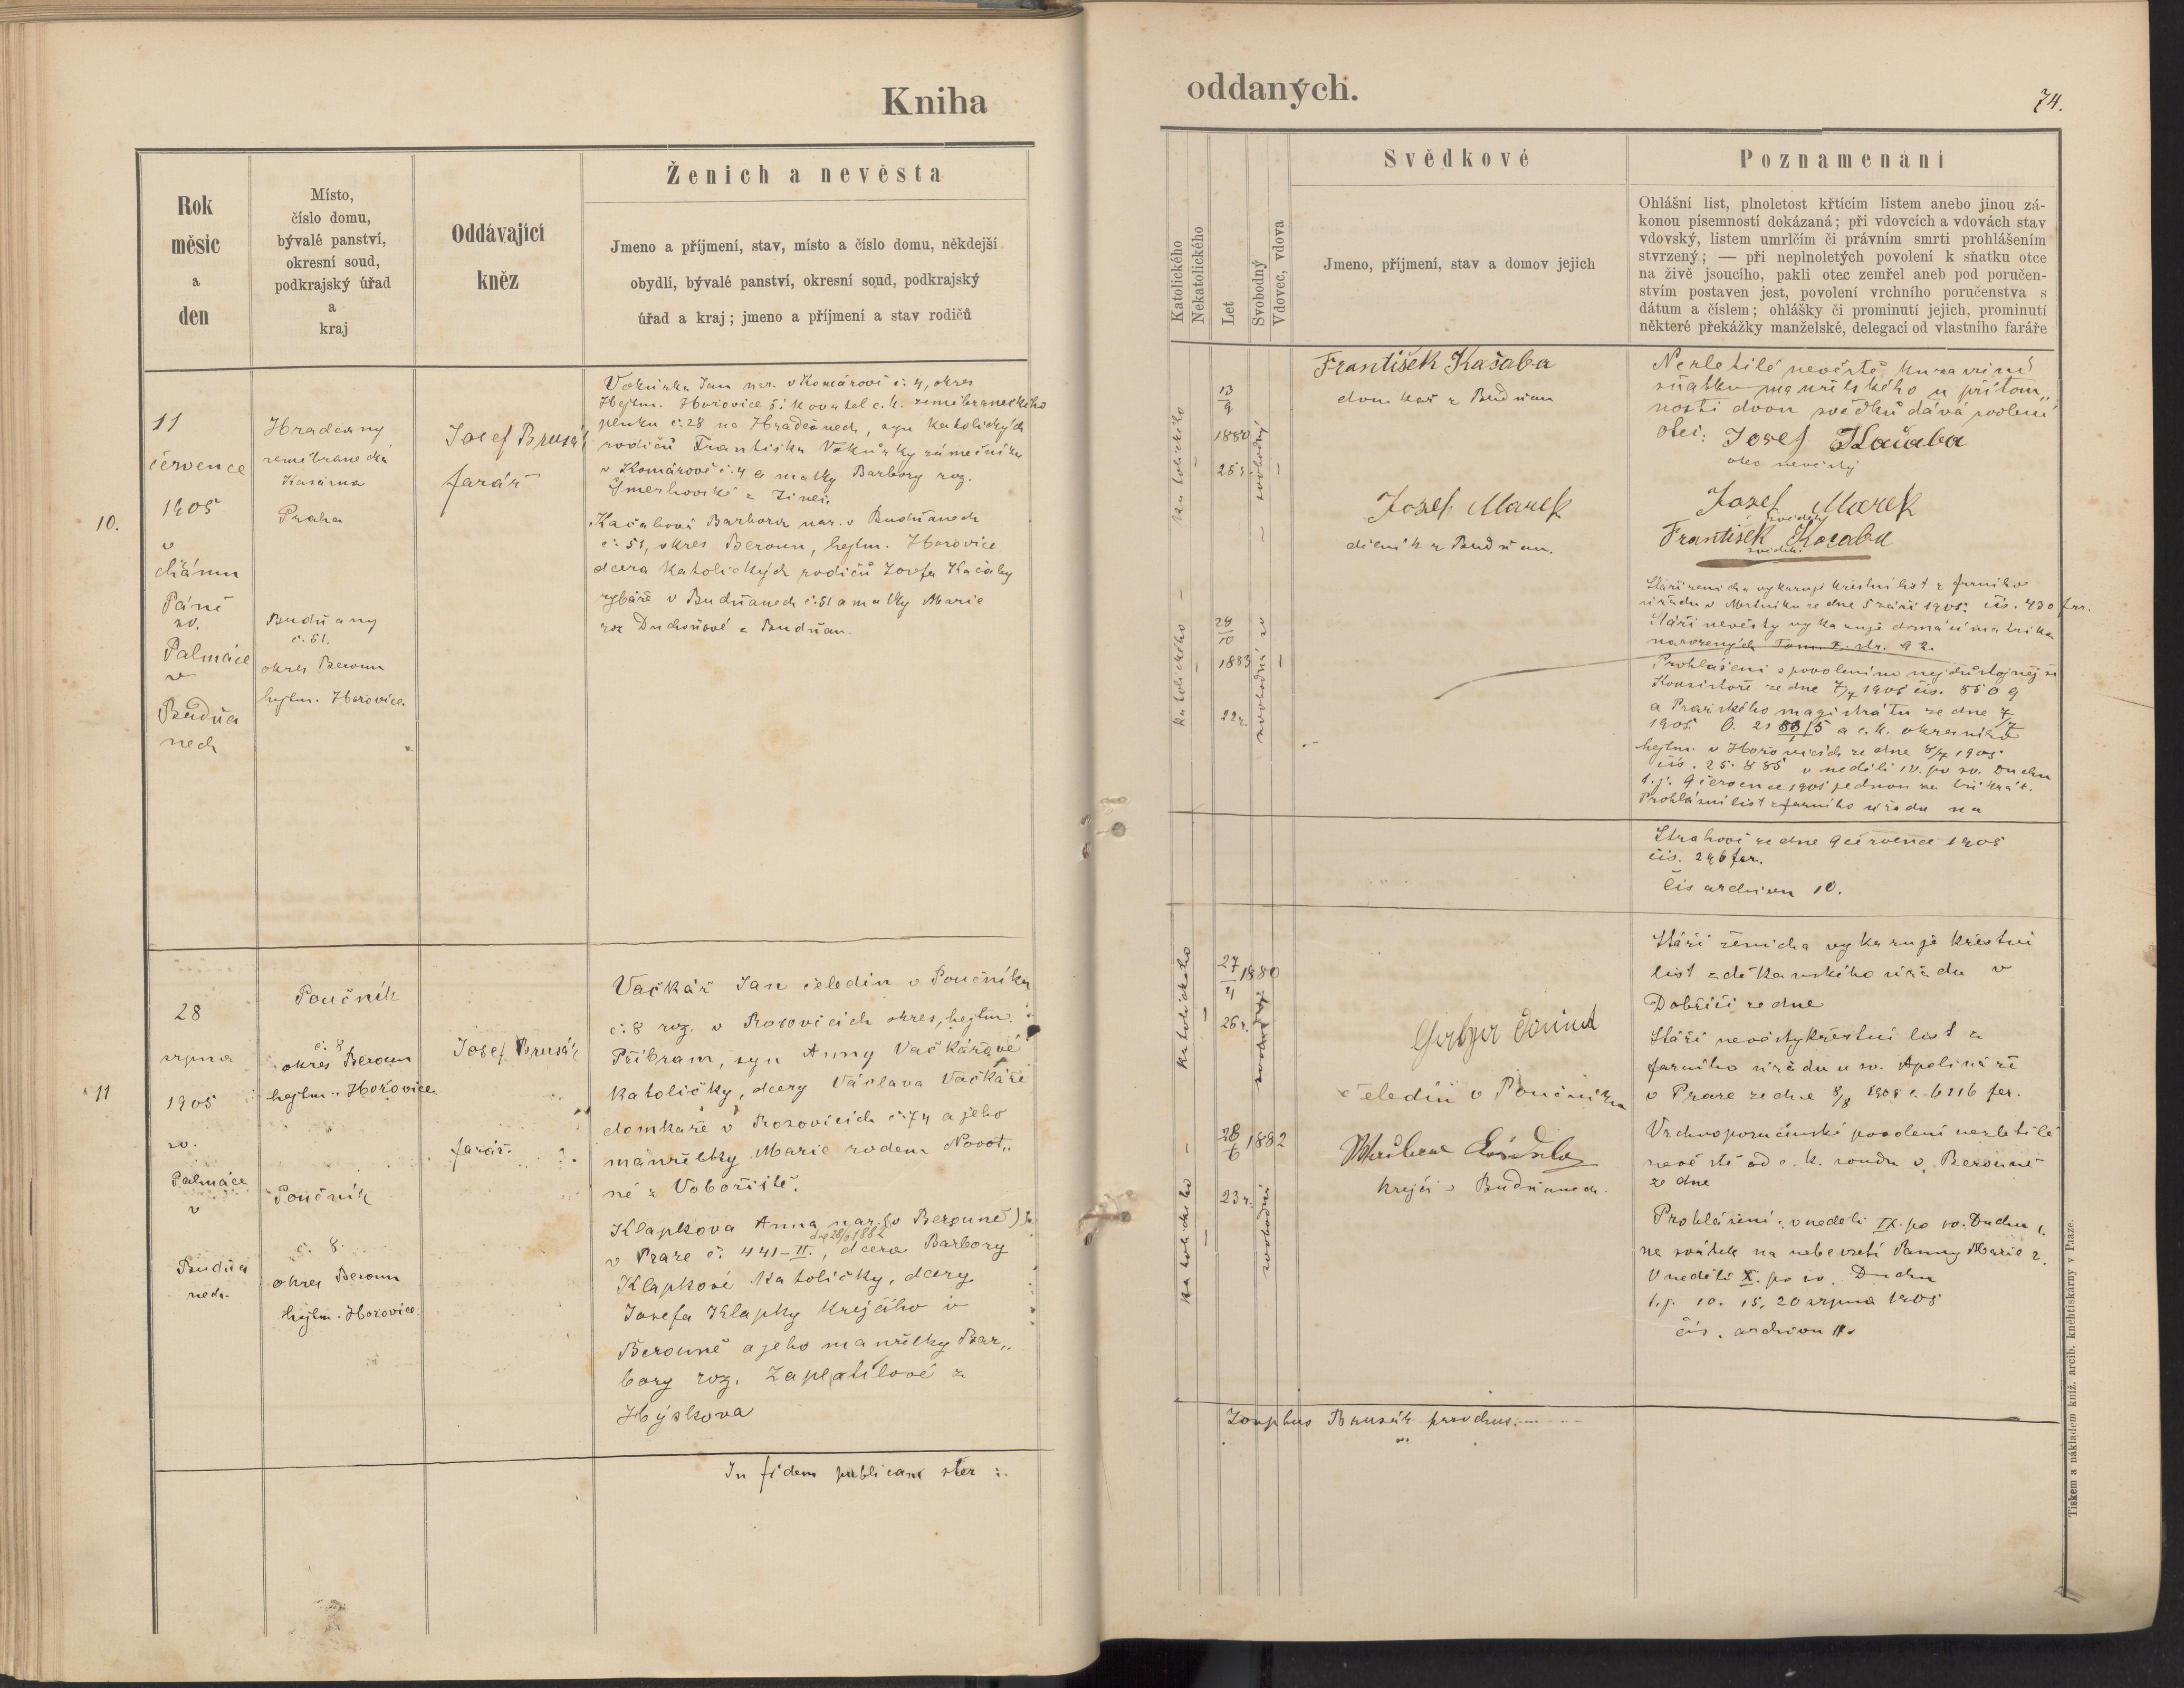 Kniha
Rok
měsíc
a
den
Místo,
číslo domu,
bývalé panství,
okresní soud,
podkrajský úřad
a
kraj
Oddávající
kněz
Ženich a nevěsta
Jmeno a příjmení, stav, místo a číslo domu, někdejší
obydlí, bývalé panství, okresní soud, podkrajský
úřad a kraj; jmeno a příjmení a stav rodičů
10.
11
července
1905
v
chrámu
Páně
sv.
Palmáce
v
Budňa
nech
Hradčany
zeměbranecká
Kasárna
Praha
Budňany
č. 51.
okres Beroun
hejtm. Hořovice.
Josef Brusák
farář
Vokurka Jan nar. v Komárově č. 4, okres
Hejtm. Hořovice šikovatel c. k. zeměbraneckého
pluku č. 28 na Hradčanech, syn katolických
rodičů Františka Vokurky zámečníka
v Komárově č. 4 a matky Barbory roz.
z Jinec.
Kačabová Barbora nar. v Budňanech
č. 51, okres Beroun, hejtm. Hořovice
dcera katolických rodičů Josefa Kačaby
rybáře v Budňanech č. 51 a matky Marie
roz Duchoňové z Budňan.
11
28
srpna
1905
sv.
Palmáce
v
Budňa
nech.
Poučník
č. 8
okres Beroun
hejtm. Hořovice.
Poučník
č. 8.
okres Beroun
hejtm. Hořovice.
Josef Brusák
farář.
Vačkář Jan čeledín v Poučníku
č. 8 roz. v Rosovicích okres, hejtm.
Příbram, syn Anny Vačkářové
katoličky, dcery Václava Vačkáře
domkáře v Rosovicích č. 74 a jeho
manželky Marie rodem Novot„
né z Voboriště.
Klapkova Anna nar. (v Berouně)
dne 28/6 1882
v Praze č. 441-II., dcera Barbory
Klapkové katoličky, dcery
Josefa Klapky krejčího v
Berouně a jeho manželky Bar„
bory roz. Zaplatílové z
Hýskova
In fidem publicam
oddaných.
74.
Katolického
Nekatolického
Let
Svobodný
Vdovec, vdova
Svědkové
Jmeno, příjmení, stav a domov jejich
Poznamenání
Ohlášní list, plnoletost křtícím listem anebo jinou zá-
konou písemností dokázaná; při vdovcích a vdovách stav
vdovský, listem umrlčím či právním smrti prohlášením
stvrzený; — při neplnoletých povolení k sňatku otce
na živě jsoucího, pakli otec zemřel aneb pod poručen-
stvím postaven jest, povolení vrchního poručenstva s
dátum a číslem; ohlášky či prominutí jejich, prominutí
některé překážky manželské, delegací od vlastního faráře
katolického
13
9
1880
25 r.
svobodný
František Kačaba
domkář z Budňan
Josef Marek
dělník z Budňan.
katolického
24
10
1883
22 r.
svobodná
Nezletilé nevěstě ku uzavření
sňatku manželského u přítom„
nosti dvou svědků dává svolení
otec: Josef Kačaba
otec nevěsty
Josef Marek
svědek
František Kačaba
svědek.
Stáří ženicha vykazuje křestní list z farního
úřadu v Mrtníku ze dne 5 září 1905. čís. 430 far.
Stáří nevěsty vykazuje domácí matrika
narozených Tom. X. str. 92.
Prohlášeni s povolením nejdůstojnější
Konsistoře ze dne 7/7 1905 čís. 8509
a Pražského magistrátu ze dne 7/7
1905 a c. k. okresního
hejtm. v Hořovicích ze dne 8/7 1905
čís. 25.885 v neděli IV. po sv. Duchu
t. j. 9 července 1905 jednou za třikrát.
Prohlášní list z farního úřadu na
Strahově ze dne 9 července 1905
čís. 246 far.
Čís archivu 10.
katolického
27
4
1880
25 r.
svobodný
čeledín v Poučníku
katolického
28
6
1882
23 r.
svobodná
krejčí v Budňanech.
Stáří ženicha vykazuje křestní
list z děkanského úřadu v
Dobříši ze dne
Stáří nevěsty křestní list z
farního úřadu u sv. Apolináře
v Praze ze dne 8/8 1905 č. 6116 far.
Vrchnoporučenské povolení nezletilé
nevěstě od c. k. soudu v Berouně
ze dne
Prohlášení: v neděli IX. po sv. Duchu 1.
na svátek na nebevzetí Panny Marie 2.
V neděli X. po sv. Duchu
t. j. 10. 15. 20 srpna 1905
čís. archivu 11.
Josephus Brusák parochus.
Tiskem a nákladem kníž. arcib. kněhtiskárny v Praze.